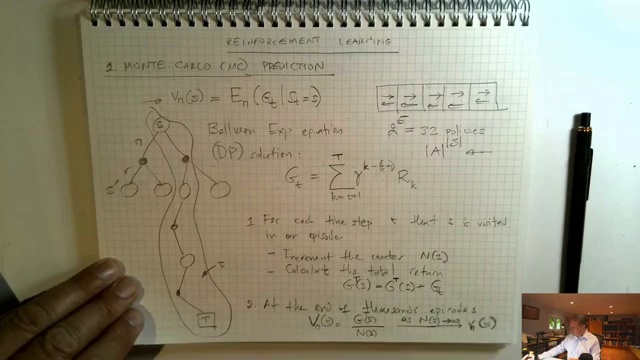 REINFORCEMENT LEARNING
1. MONTE-CARLO (MC) PREDICTION
→ Vπ(s) = Eπ(Gt | St = s)
→ → → → →
← ← ← ← ←
S
π
r
s'
Bellman Exp. equation
(DP) solution:
2^5 = 32 policies
|A|^|S| ←
Gt = Σ_{k=t+1}^{T} γ^{k-(t+1)} Rk
τ
T
1. For each time step t that s is visited
in an episode
- Increment the counter N(s)
- Calculate the total return
G^T(s) = G^T(s) + Gt
2. At the end of thousands episodes
Vπ(s) = G(s)/N(s) as N(s)→∞ → Vπ(s)